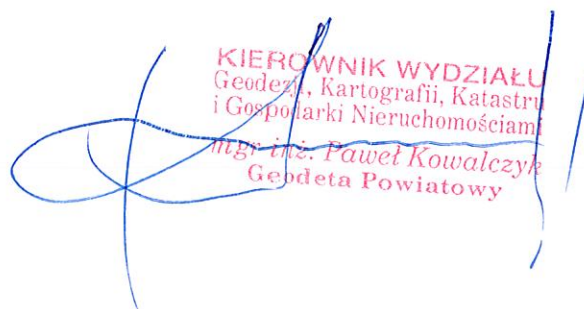 KIEROWNIK WYDZIAŁU
Geodezji, Kartografii, Katastru
i Gospodarki Nieruchomościami
mgr inż. Paweł Kowalczyk
Geodeta Powiatowy